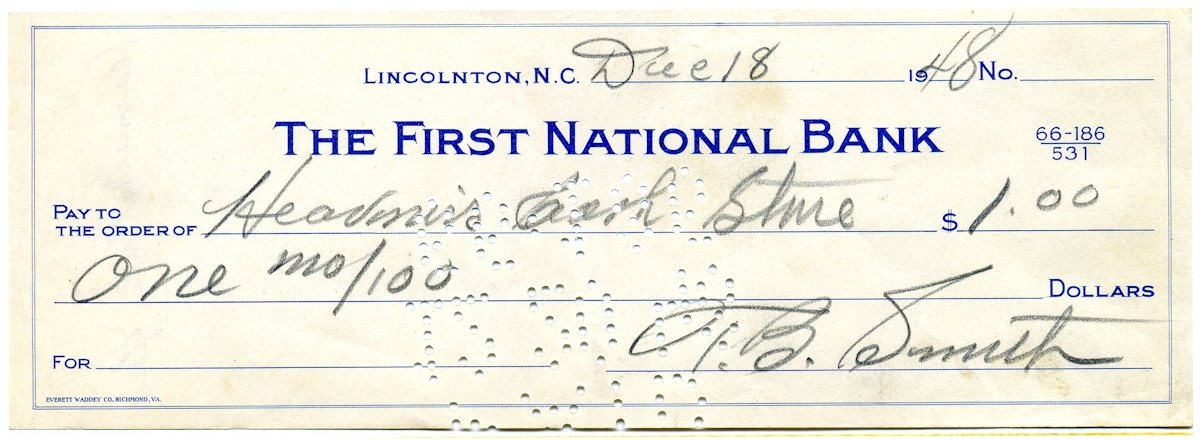 LINCOLNTON, N.C. Dec 18 1948 No.
THE FIRST NATIONAL BANK
66-186
531
PAY TO
THE ORDER OF Cash Store $ 1.00
One no/100 DOLLARS
FOR B. Smith
EVERETT WADDEY CO. RICHMOND, VA.